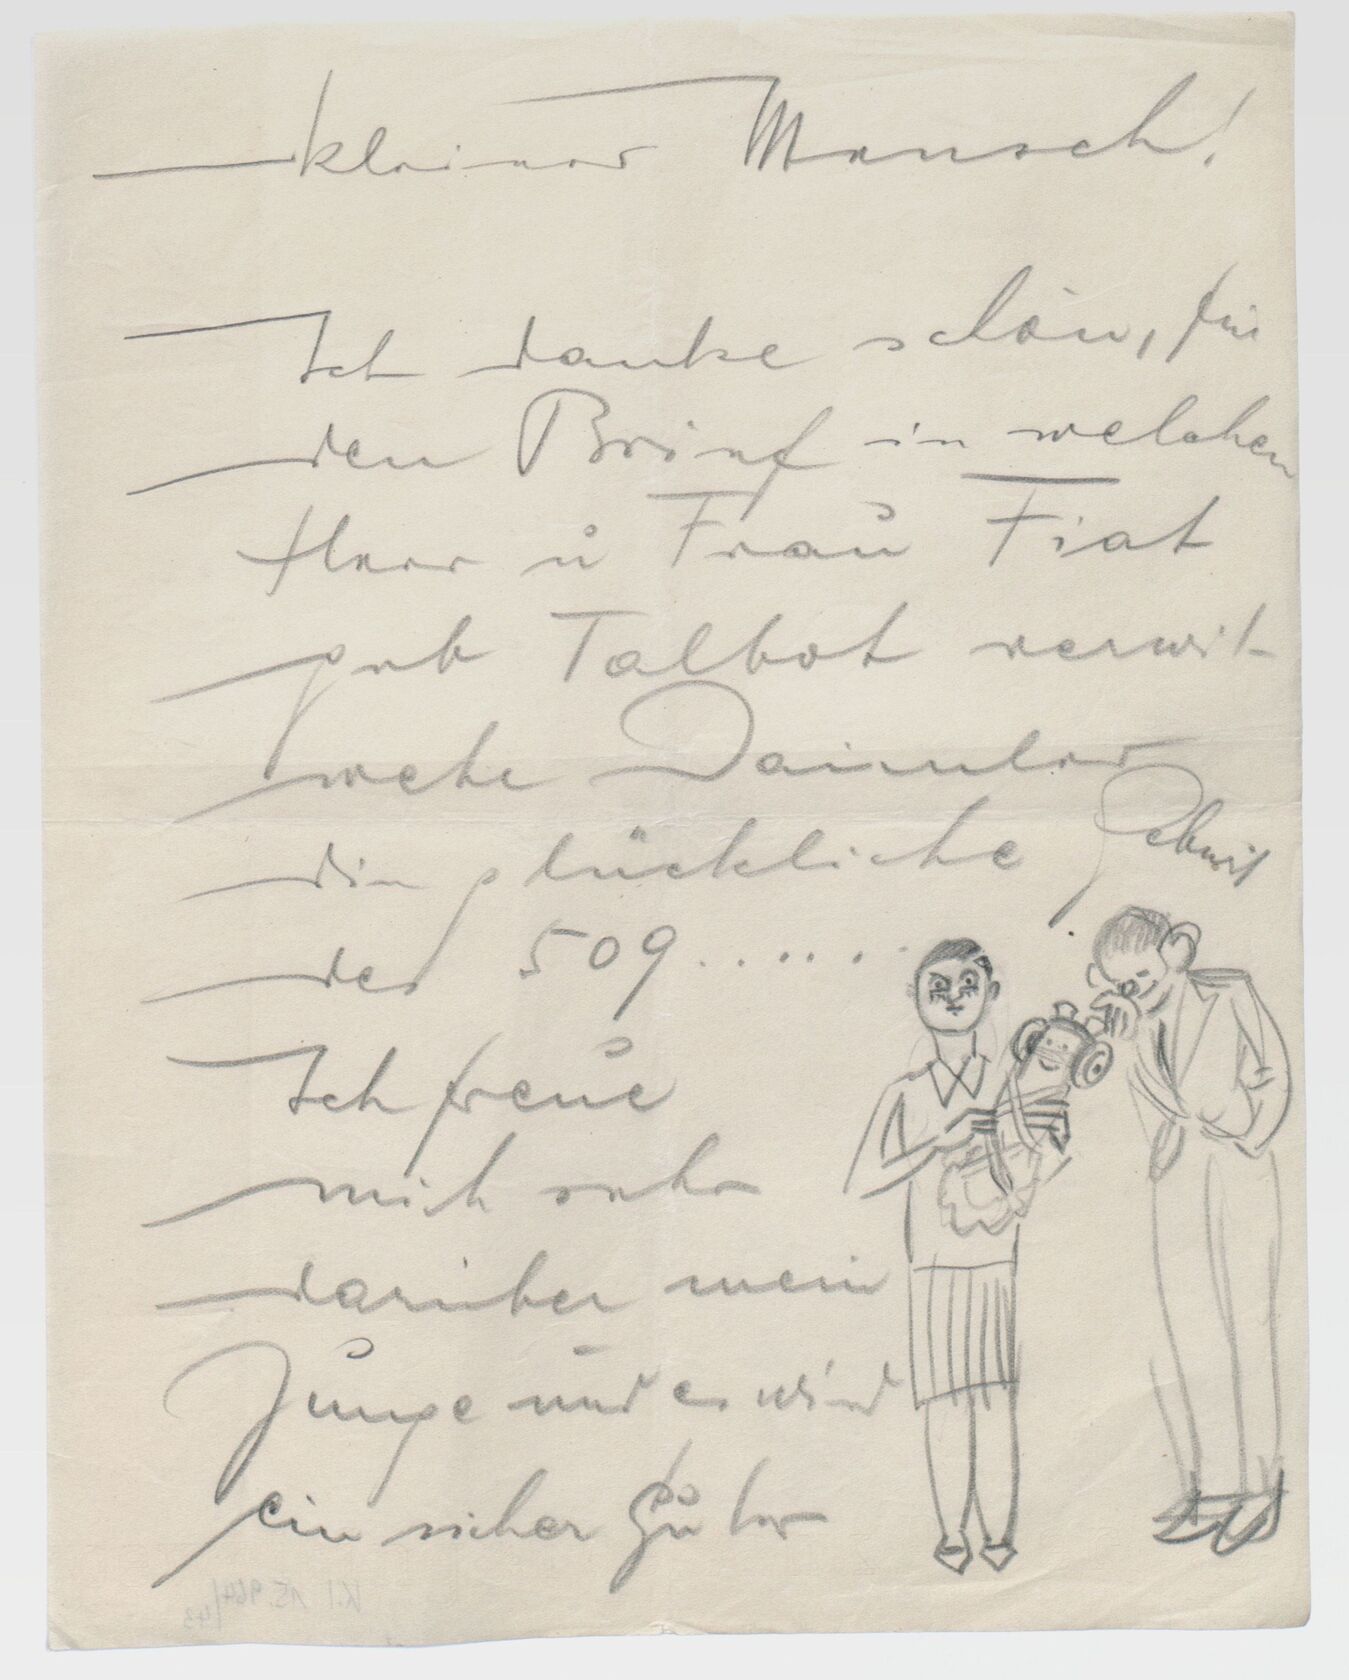 kleiner Mensch!
Ich danke schön, für
den Brief in welchen
Herr u Frau Fiat
geb Talbot verwit-
wete Daimler
die glückliche Geburt
des 509......
Ich freue
mich sehr
darüber mein
Junge und es wird
ein sicher guter
K.I. 15.964/43